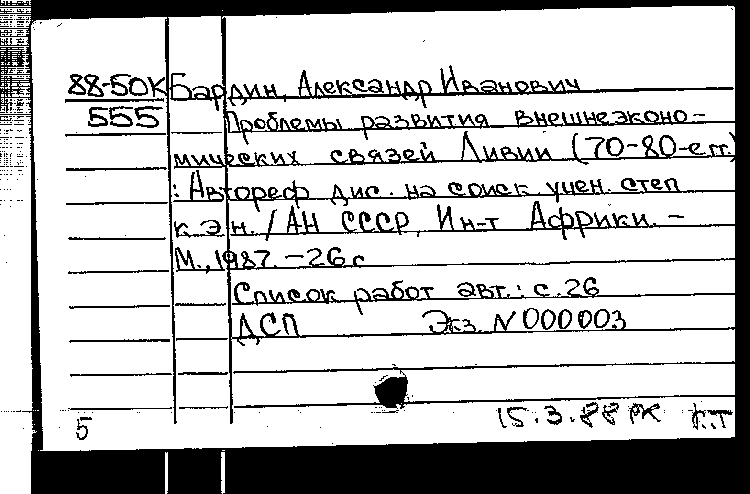 88-50К Бардин, Александр Иванович
555 Проблемы развития внешнеэконо-
мических связей Ливии (70-80-е гг.)
: Автореф дис. на соиск учен. степ
к.э.н. / АН СССР, Ин-т Африки. -
М., 1987. - 26 с
Список работ авт.: с. 26
ДСП Экз. N 000003
15.3.88 РК К.Т
5